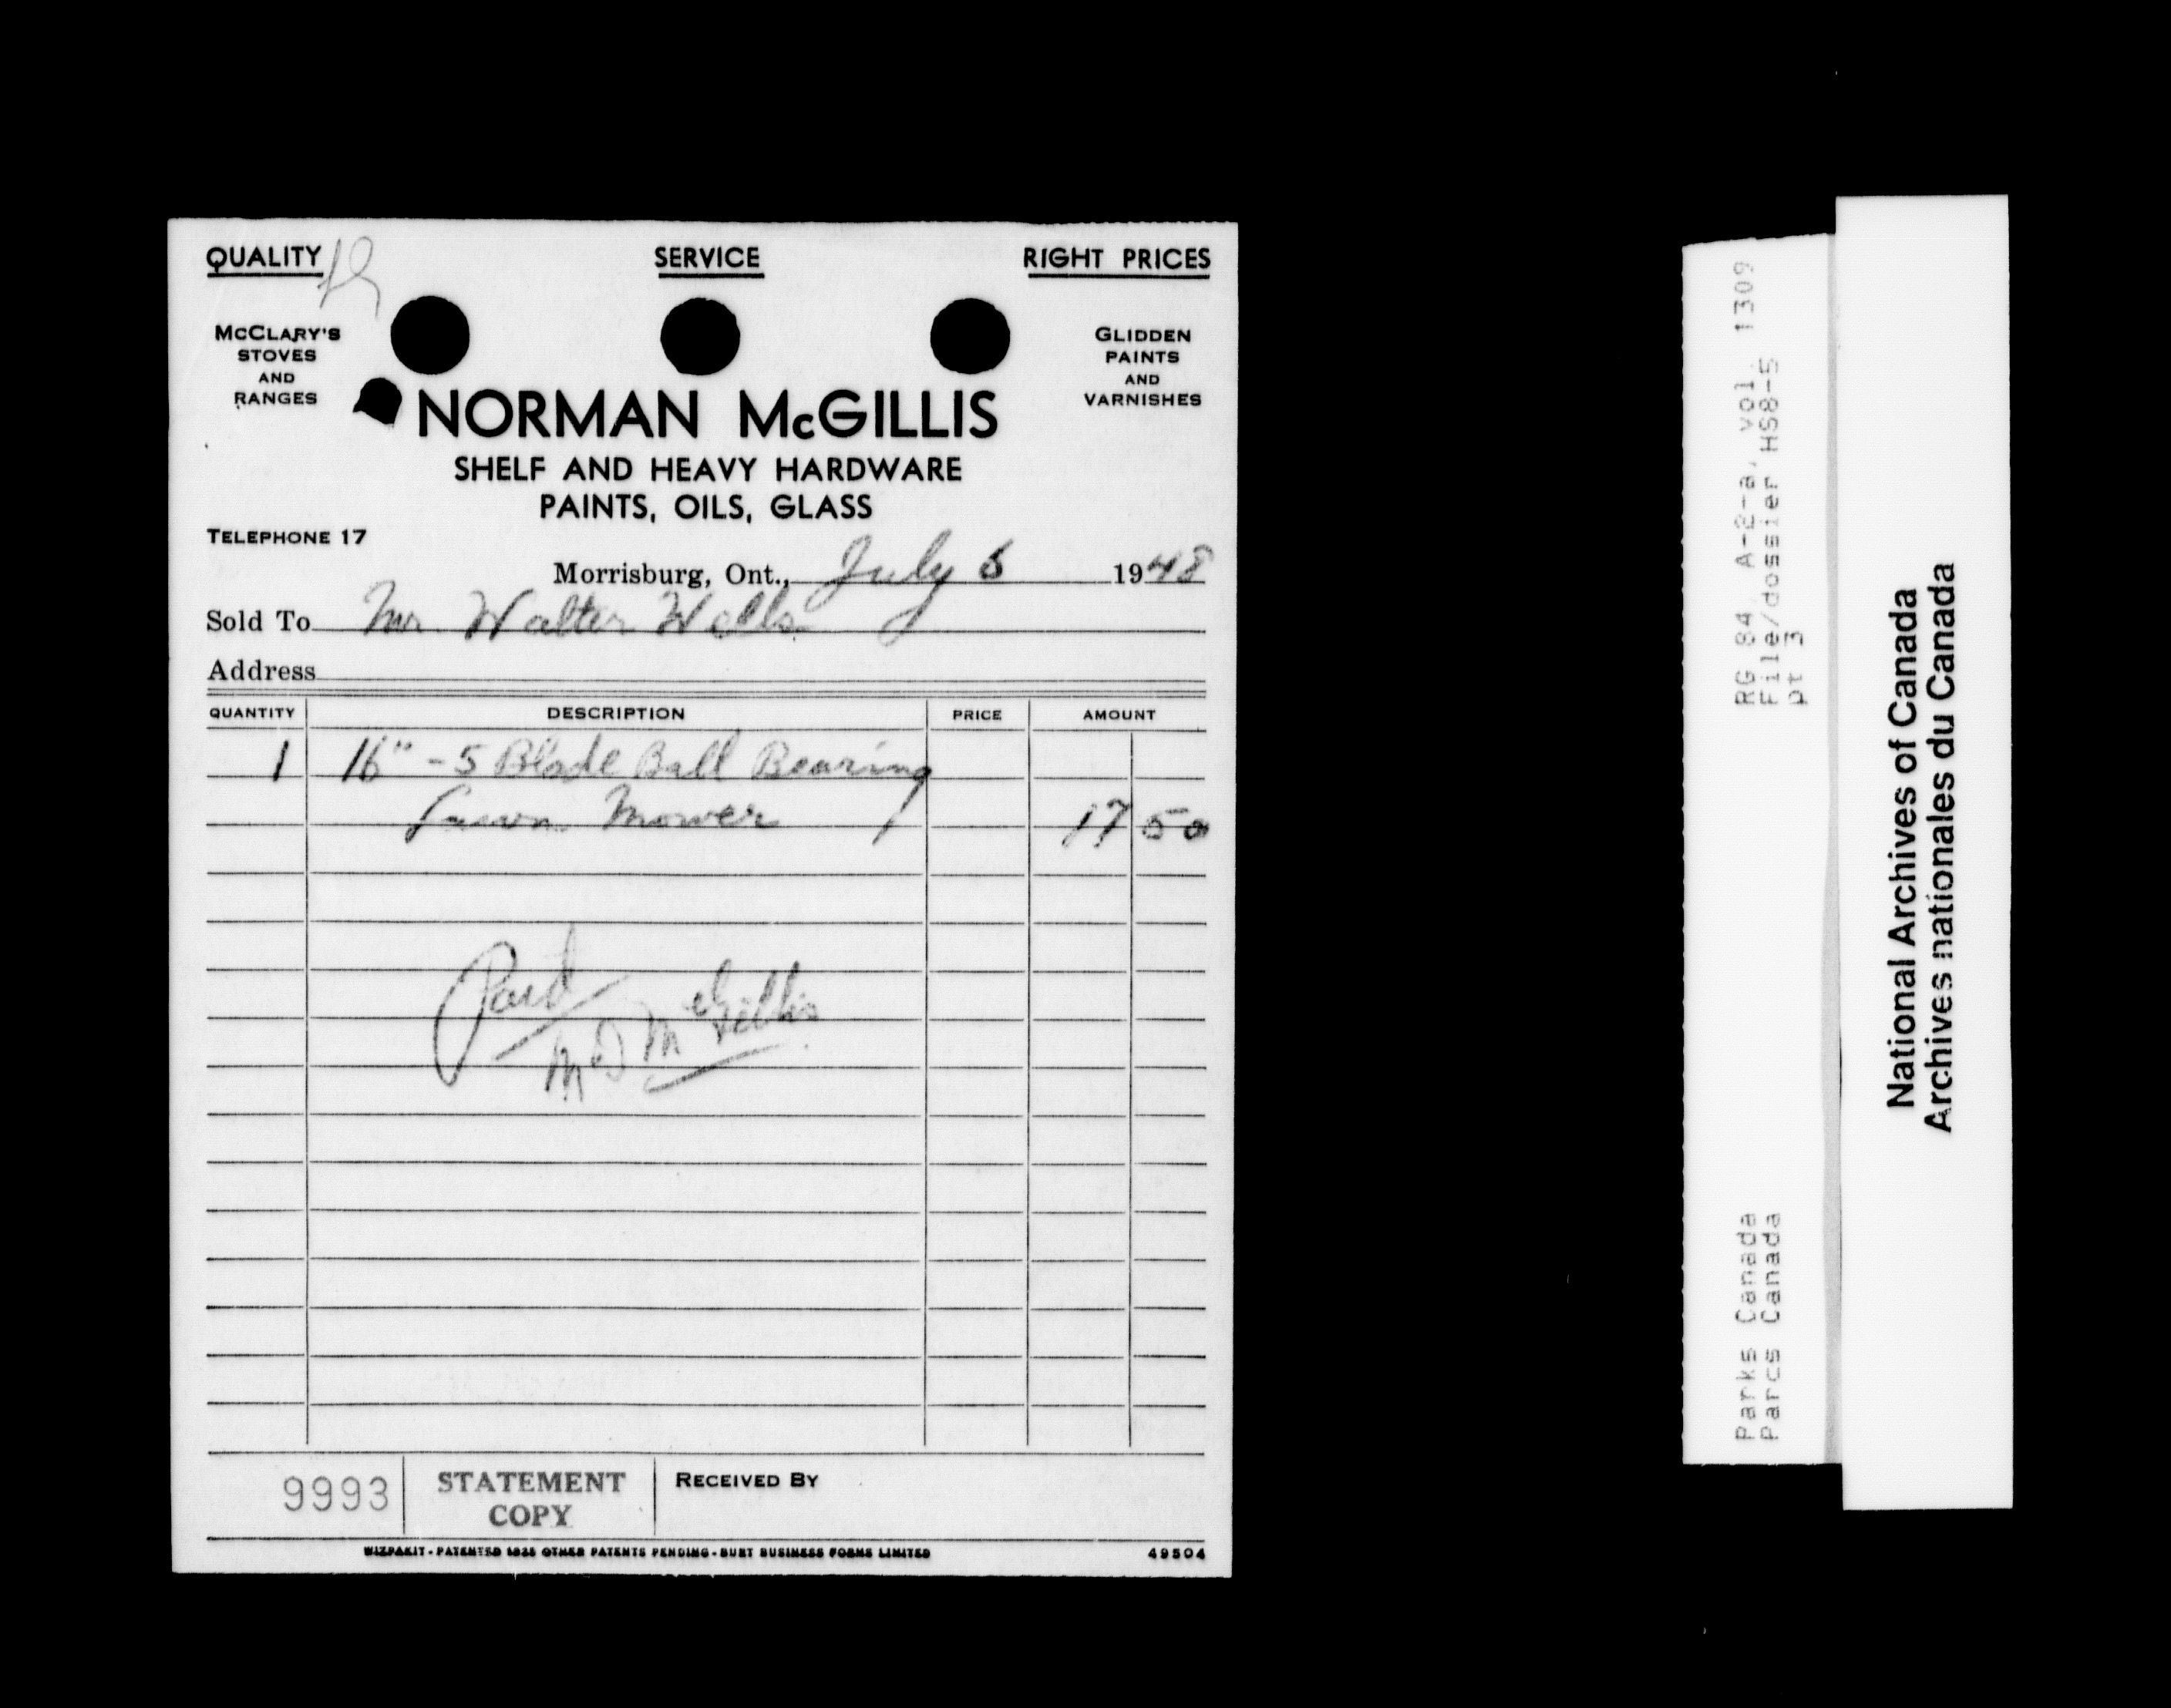 QUALITY SERVICE RIGHT PRICES
McCLARY'S
STOVES
AND
RANGES
GLIDDEN
PAINTS
AND
VARNISHES
NORMAN McGILLIS
SHELF AND HEAVY HARDWARE
PAINTS, OILS, GLASS
TELEPHONE 17
Morrisburg, Ont., July 6 1948
Sold To Mr. Walter Wells
Address
QUANTITY DESCRIPTION PRICE AMOUNT
1 16" - 5 Blade Ball Bearing
Lawn Mower 17 50
Paid
McGillis
9993 STATEMENT
COPY
RECEIVED BY
WIZPAKIT - PATENTED 1925 OTHER PATENTS PENDING - BURT BUSINESS FORMS LIMITED 49504
RG 84, A-2-a, vol. 1309
File/dossier HS8-5
pt 3
Parks Canada
Parcs Canada
National Archives of Canada
Archives nationales du Canada